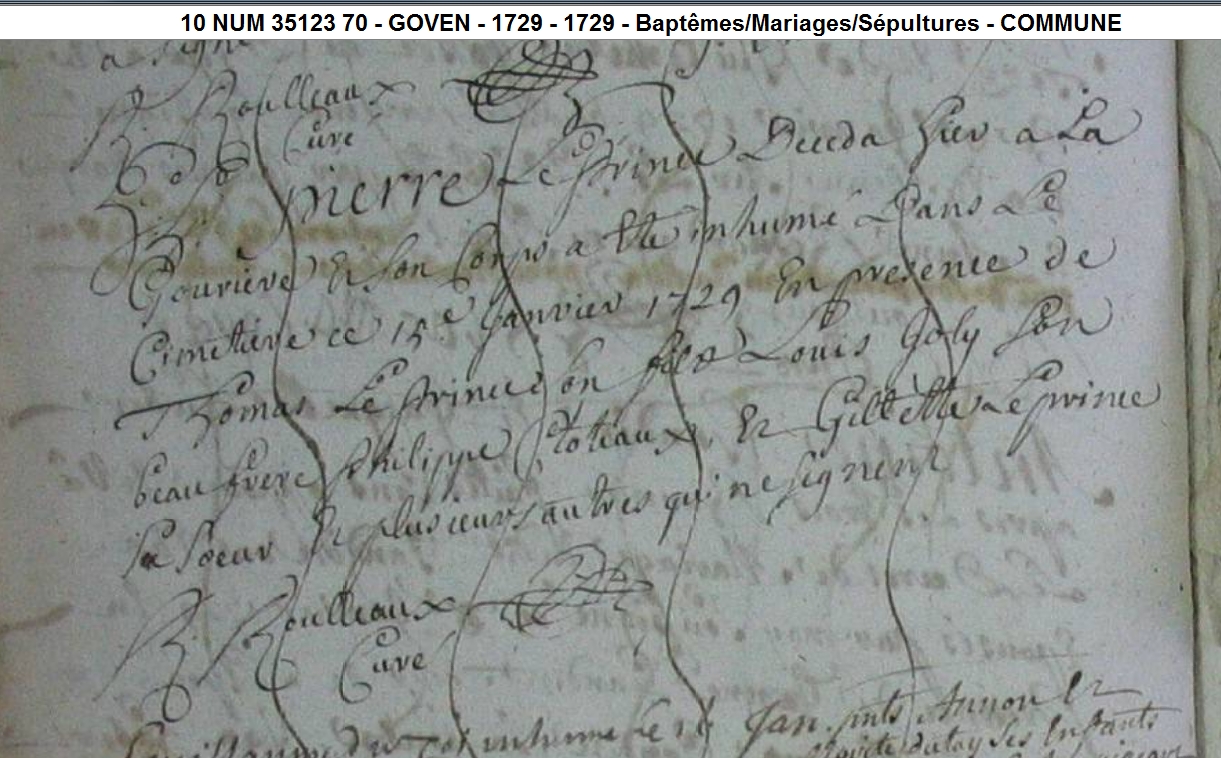 10 NUM 35123 70 - GOVEN - 1729 - 1729 - Baptêmes/Mariages/Sépultures - COMMUNE
a signé
R Roulleaux
Curé
pierre Le prince Deceda hier a La
Gourière Et son Corps a Eté inhumé Dans Le
Cimetiere ce 15e Janvier 1729 En presence de
Thomas Le prince son fils Louis Joly son
beau frere philippe Et Gillette Le prince
sa soeur Et plusieurs autres qui ne signent
R Roulleaux
Curé
inhumé le Jan.
ses Enfants